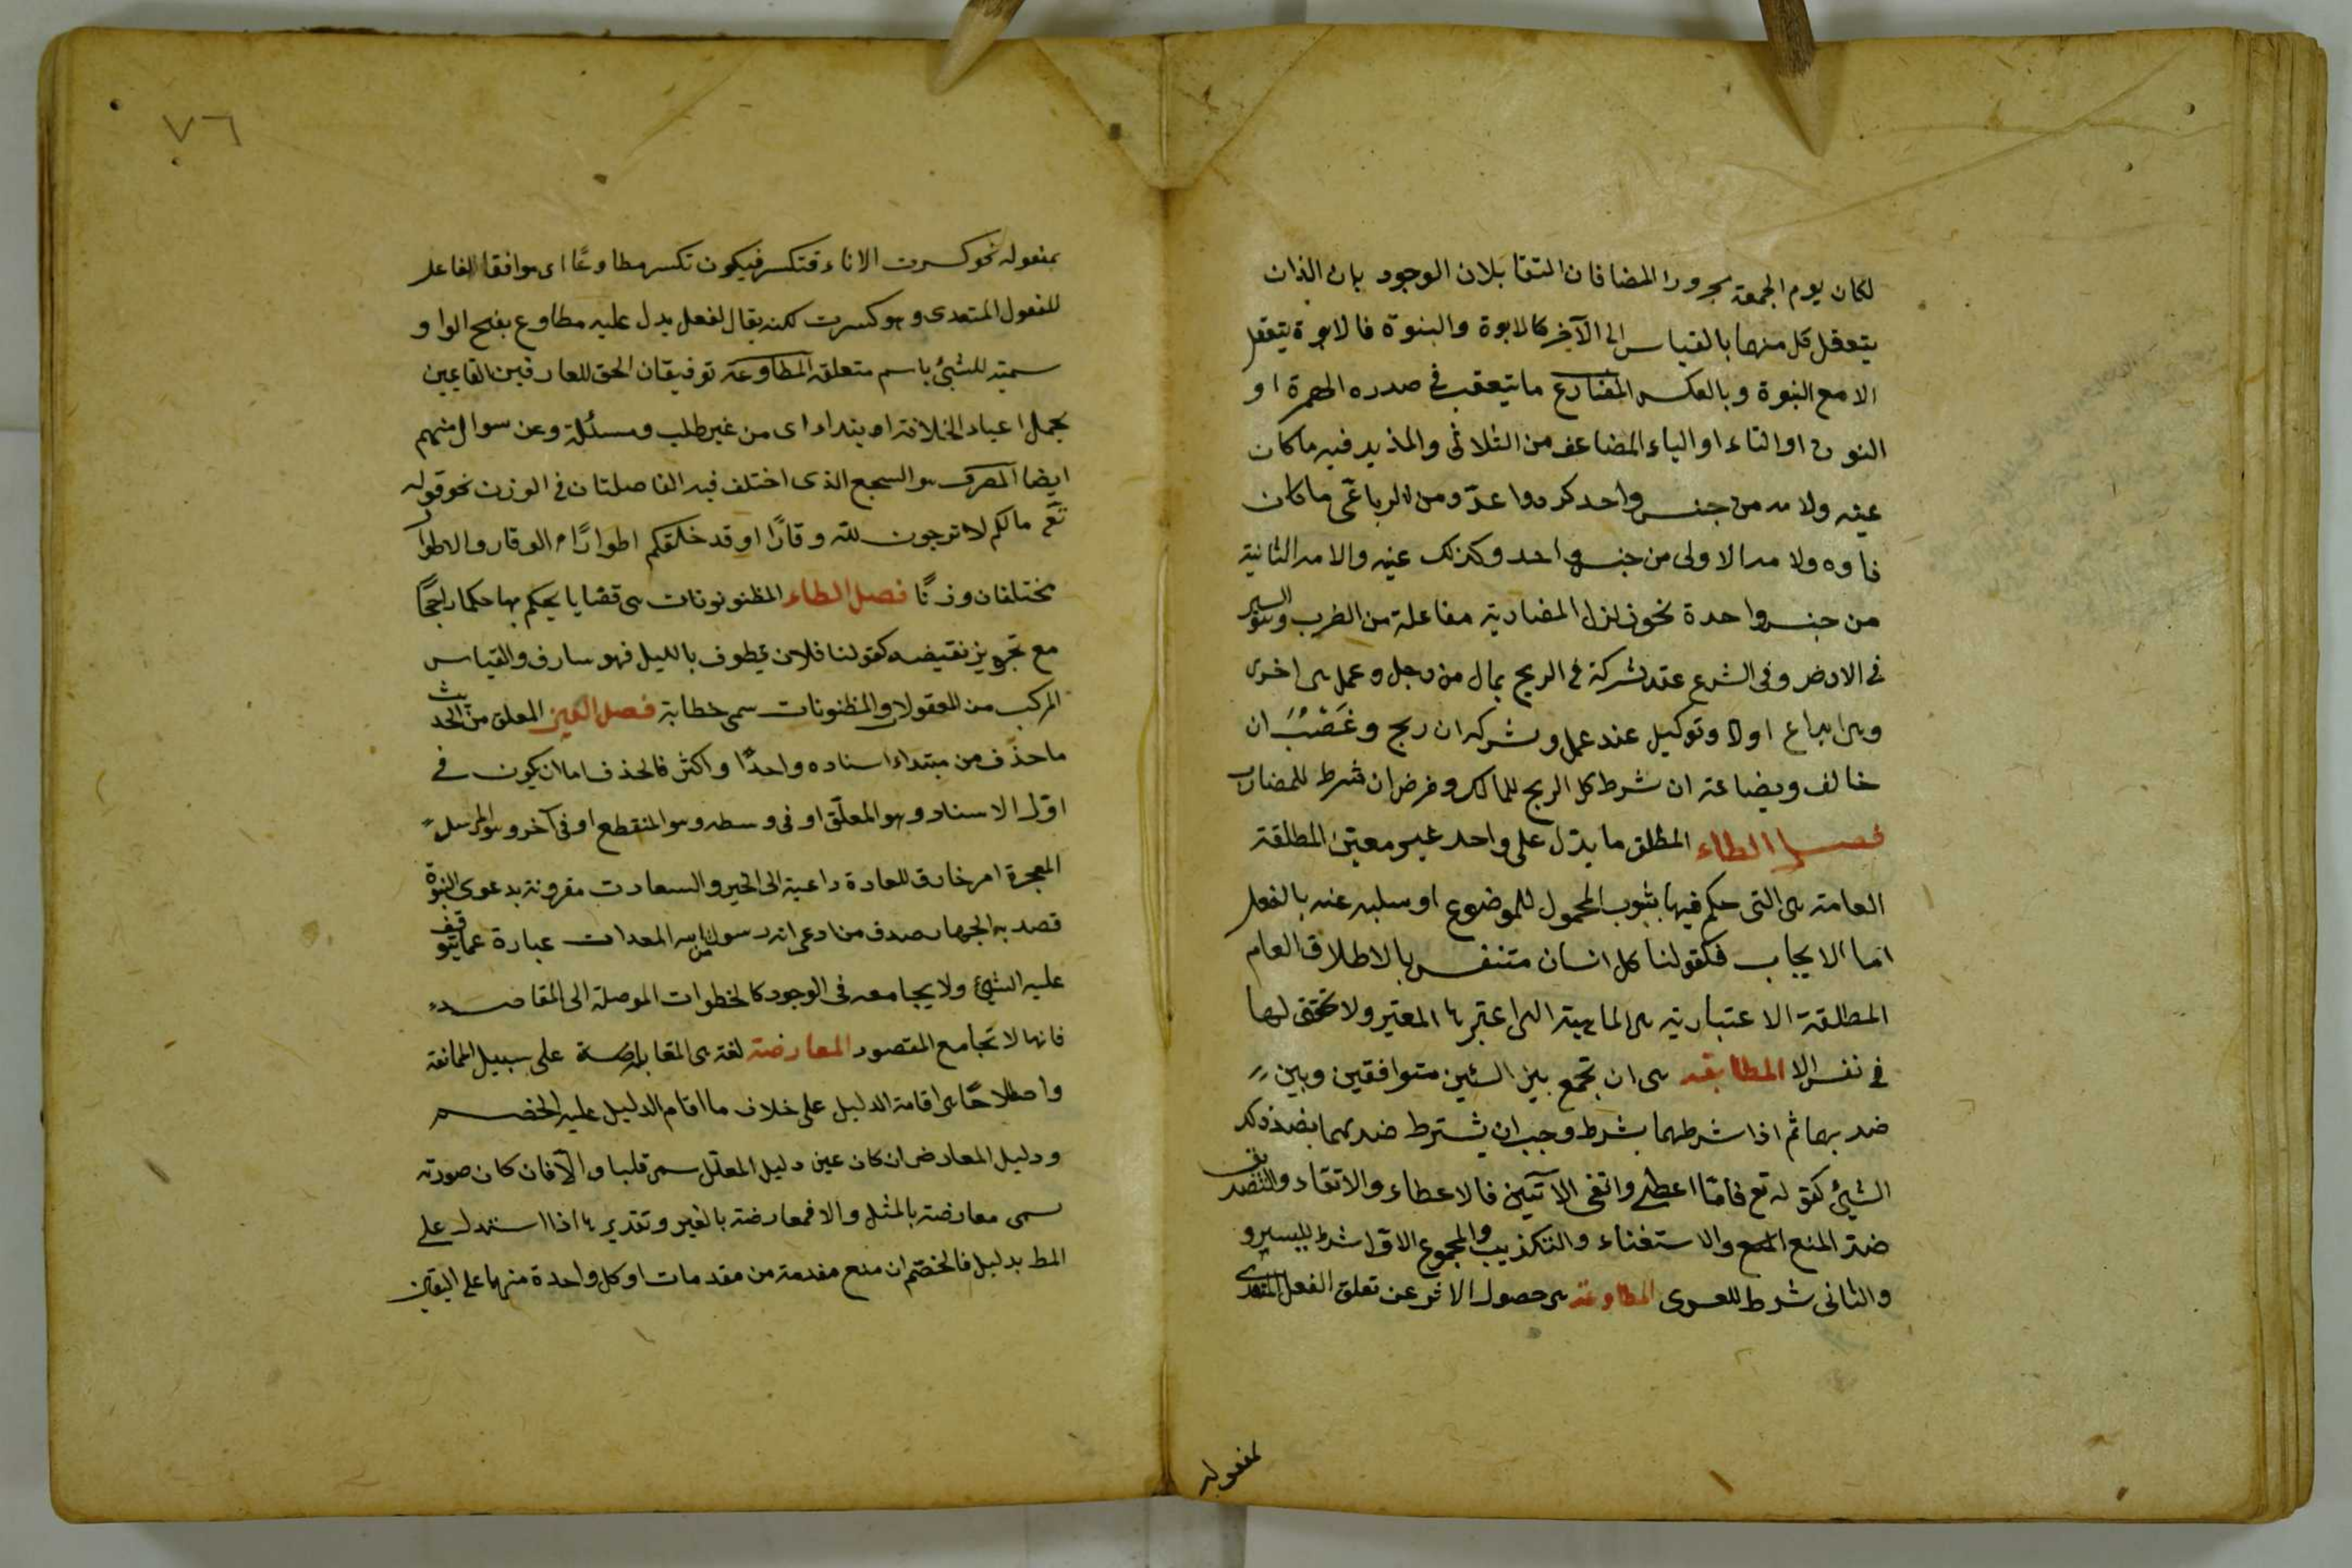 لكان يوم الجمعة مجرورا المضافان المتقابلان الوجود يان الذان
يتعقل كل منهما بالقياس الى الآخر كالابوة والبنوة فالابوة يتعقل
الا مع النبوة وبالعكس المضارع ما يتعقب في صدره الهمزة او
النون او التاء او الياء المضاعف من الثلاثى والمذيد فيه ما كان
عينه ولامه من جنس واحد كردوا عدّ ومن الرباعى ما كان
فاوه ولامه الاولى من جنس واحد وكذلك عينه والامه الثانية
من جنس واحدة نحو زلزل المضاربة مفاعلة من الضرب وهو السير
في الارض وفى الشرع عقد شركة فى الربح بمال من رجل وعمل من اخرى
وهى ايداع اولا وتوكيل عند عمل وشركه ان ربح وغَصْبٌ ان
خالف وبضاعة ان شرط كل الربح للمالك وقرض ان شرط للمضارب
فصل الطاء المطلق ما يدّل على واحد غير معين المطلقة
العامة هى التى حكم فيها بثبوب المحمول للموضوع او سلبه عنه بالفعل
اما الايجاب فكقولنا كل انسان متنفس بالاطلاق العام
المطلقة الاعتبارية هى الماهية التى اعتبرها المعتبر ولا تحقق لها
فى نفس الا المطابقه هى ان تجمع بين الشئين متوافقين وبين
ضديهما ثم اذا شرطهما بشرط وجب ان يشترط ضديهما بضد ذلك
الشئ كقوله تع فامّا اعطى واتقى الآتيين فالاعطاء والاتقاد والتصديق
ضدّ المنع والاستغناء والتكذيب والمجموع الاول شرط لليسرى و
والثانى شرط للعسرى المطاوعة هى حصول الاثر عن تعلق الفعل المتعدى
بمفعوله
٧٦
بمفعوله نحو كسرت الاناء فتكسر فيكون تكسر مطاوعًا اى موافقا لفاعل
للفعول المتعدى وهو كسرت لكنه يقال لفعل يدل عليه مطاوع بفتح الواو
سمية للشئ باسم متعلقه المطاوعة توفيقان الحق للعارفين القايمين
بحمل اعباد الخلافة ابتداء اى من غير طلب ومسئلة وعن سوال منهم
ايضا المصرف هو السجع الذى اختلف فيه الفاصلتان فى الوزن نحو قوله
تعَ مالكم لا ترجون لله وقارًا وقد خلقكم اطوارًا فالوقار والاطوار
مختلفان وزنًا فصل الظاء المظنونونات هى قضايا يحكم بها حكما راجحًا
مع تجويز نقيضه كقولنا فلان يطوف بالليل فهو سارق والقياس
المركب من المقبولات والمظنونات سمى خطابة فصل العين المعلق من الحديث
ما حذف من مبتداء اسناده واحدًا واكثر فالحذف اما ان يكون فى
اوّل الاسناد وهو المعلّق او فى وسطه وهو المنقطع او فى آخر وهو المرسل
المعجزة امر خارق للعادة داعية الى الخير والسعادت مقرونة بدعوى النبوة
قصد به اظهار صدق من ادعى انه رسول من الله المعدات عبارة عما يتوقف
عليه الشئ ولا يجامعه فى الوجود كالخطوات الموصلة الى المقاصد
فانها لا تجامع المقصود المعارضة لغة هى المقابلة على سبيل الممانعة
واصطلاحًا هى اقامة الدليل على خلاف ما اقام الدليل عليه الخصم
ودليل المعارض ان كان عين دليل المعلّل سمى قلبا والآفان كان صورته
سمى معارضة بالمثل والا فمعارضة بالغير وتقديرها اذا استدل على
المط بدليل فالخصم ان منع مقدمة من مقدمات او كل واحدة منها على اليقين